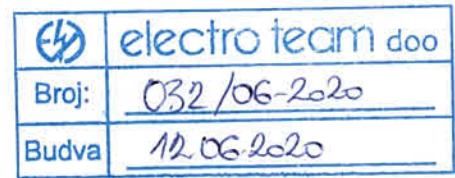 electro team doo
Broj: 032/06-2020
Budva 12.06.2020